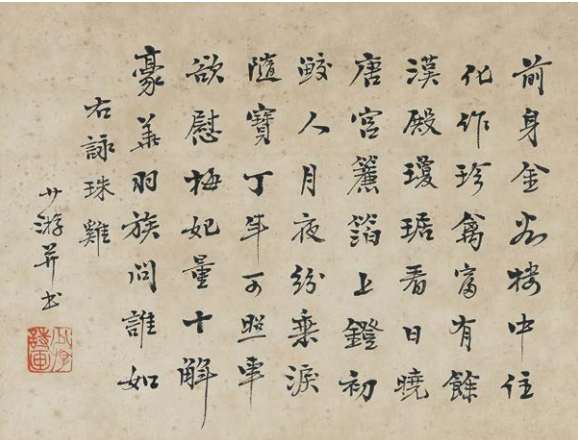 前身金谷樓中住
化作珍禽富有餘
漢殿瓊琚看日曉
唐宮簾箔上鐙初
鮫人月夜紛垂淚
隨寶丁年可照車
欲慰梅妃量十斛
豪華羽族問誰如
右詠珠雞
少游并书